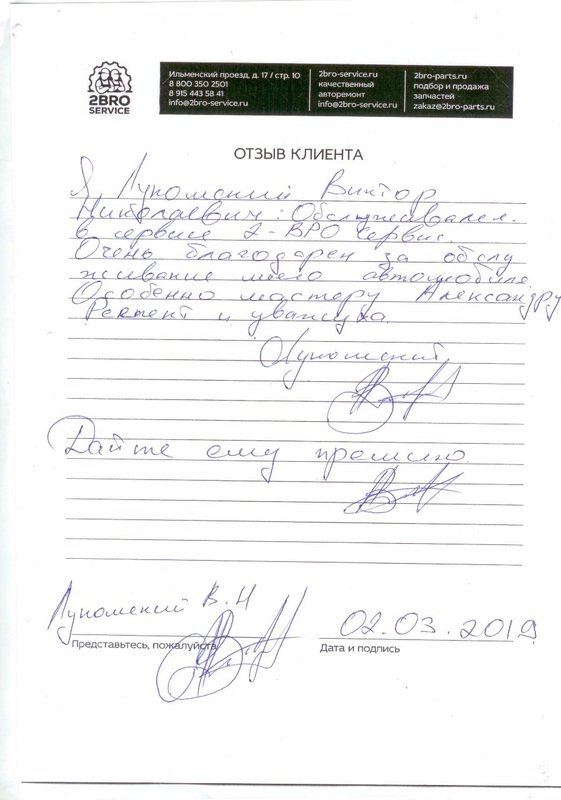 2BRO
SERVICE
Ильменский проезд, д. 17 / стр. 10
8 800 350 2501
8 915 443 58 41
info@2bro-service.ru
2bro-service.ru
качественный
авторемонт
info@2bro-service.ru
2bro-parts.ru
подбор и продажа
запчастей
zakaz@2bro-parts.ru
ОТЗЫВ КЛИЕНТА
Я Лукомский Виктор
Николаевич: Обслуживался.
в сервисе 2-BPO Сервис.
Очень благодарен за обслу
живание моего автомобиля.
Особенно мастеру Александру
Респект и уважуха.
Лукомский
Дайте ему премию
Лукомский В.Н
02.03.2019
Представьтесь, пожалуйста
Дата и подпись